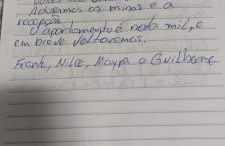 Adoramos os mimos e a
recepção.
O apartamento é nota mil, e
em breve voltaremos.
Frank, Nilce, Mayra e Guilherme